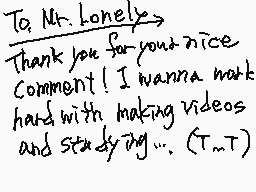 To, Mr. Lonely
Thank you for your nice
comment! I wanna work
hard with making videos
and studying... (T~T)